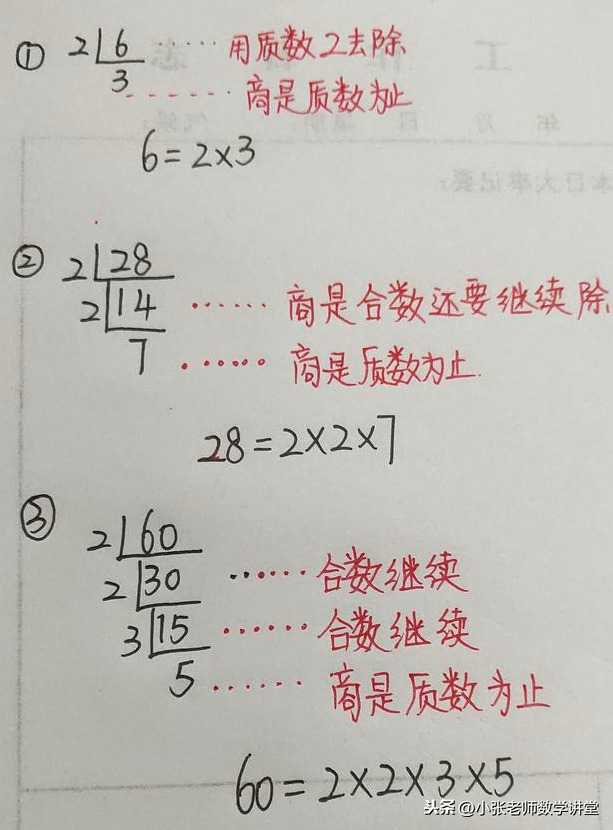 ① 2 6 ······ 用质数2去除
3 ······ 商是质数为止
6=2×3
② 2 28
2 14 ······ 商是合数还要继续除
7 ······ 商是质数为止.
28=2×2×7
③ 2 60
2 30 ······ 合数继续
3 15 ······ 合数继续
5 ······ 商是质数为止
60=2×2×3×5
工 作 日 志
年 月 日 星期: 气候:
本日大事记要:
头条 @小张老师数学讲堂